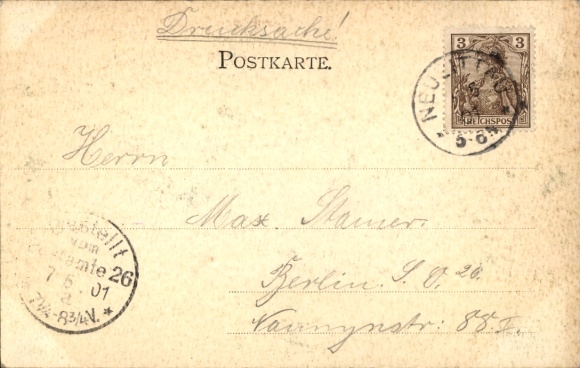 Drucksache!
POSTKARTE.
3 3
REICHSPOST
5-6
Herrn
Max Stamer.
Berlin. S. O. 26.
Naunynstr: 88 I.
Bestellt
vom
Postamte 26
7. 6. 01
7¼-8¾V. *